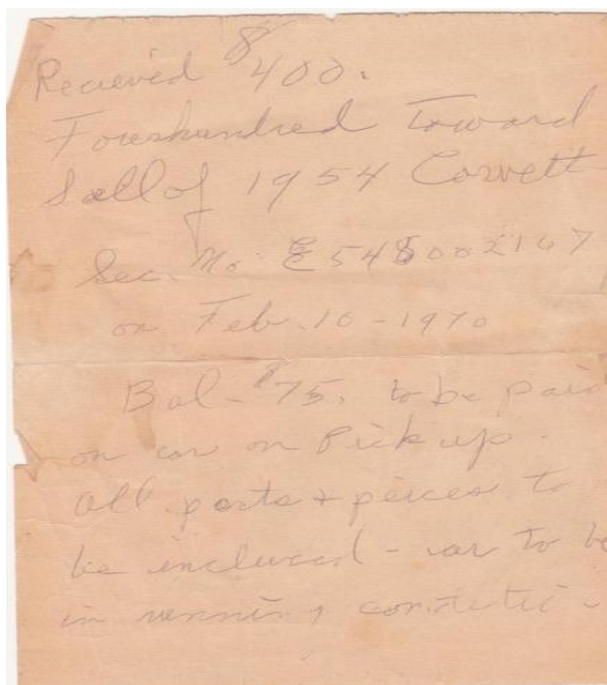 Recieved $400.
Fourhundred Toward
Sell of 1954 Corvett
Sec. No. E54S002167
on Feb. 10 - 1970
Bal - $75. to be paid
on car on Pick up.
All parts + peices to
be inclued - car to be
in running conditi-